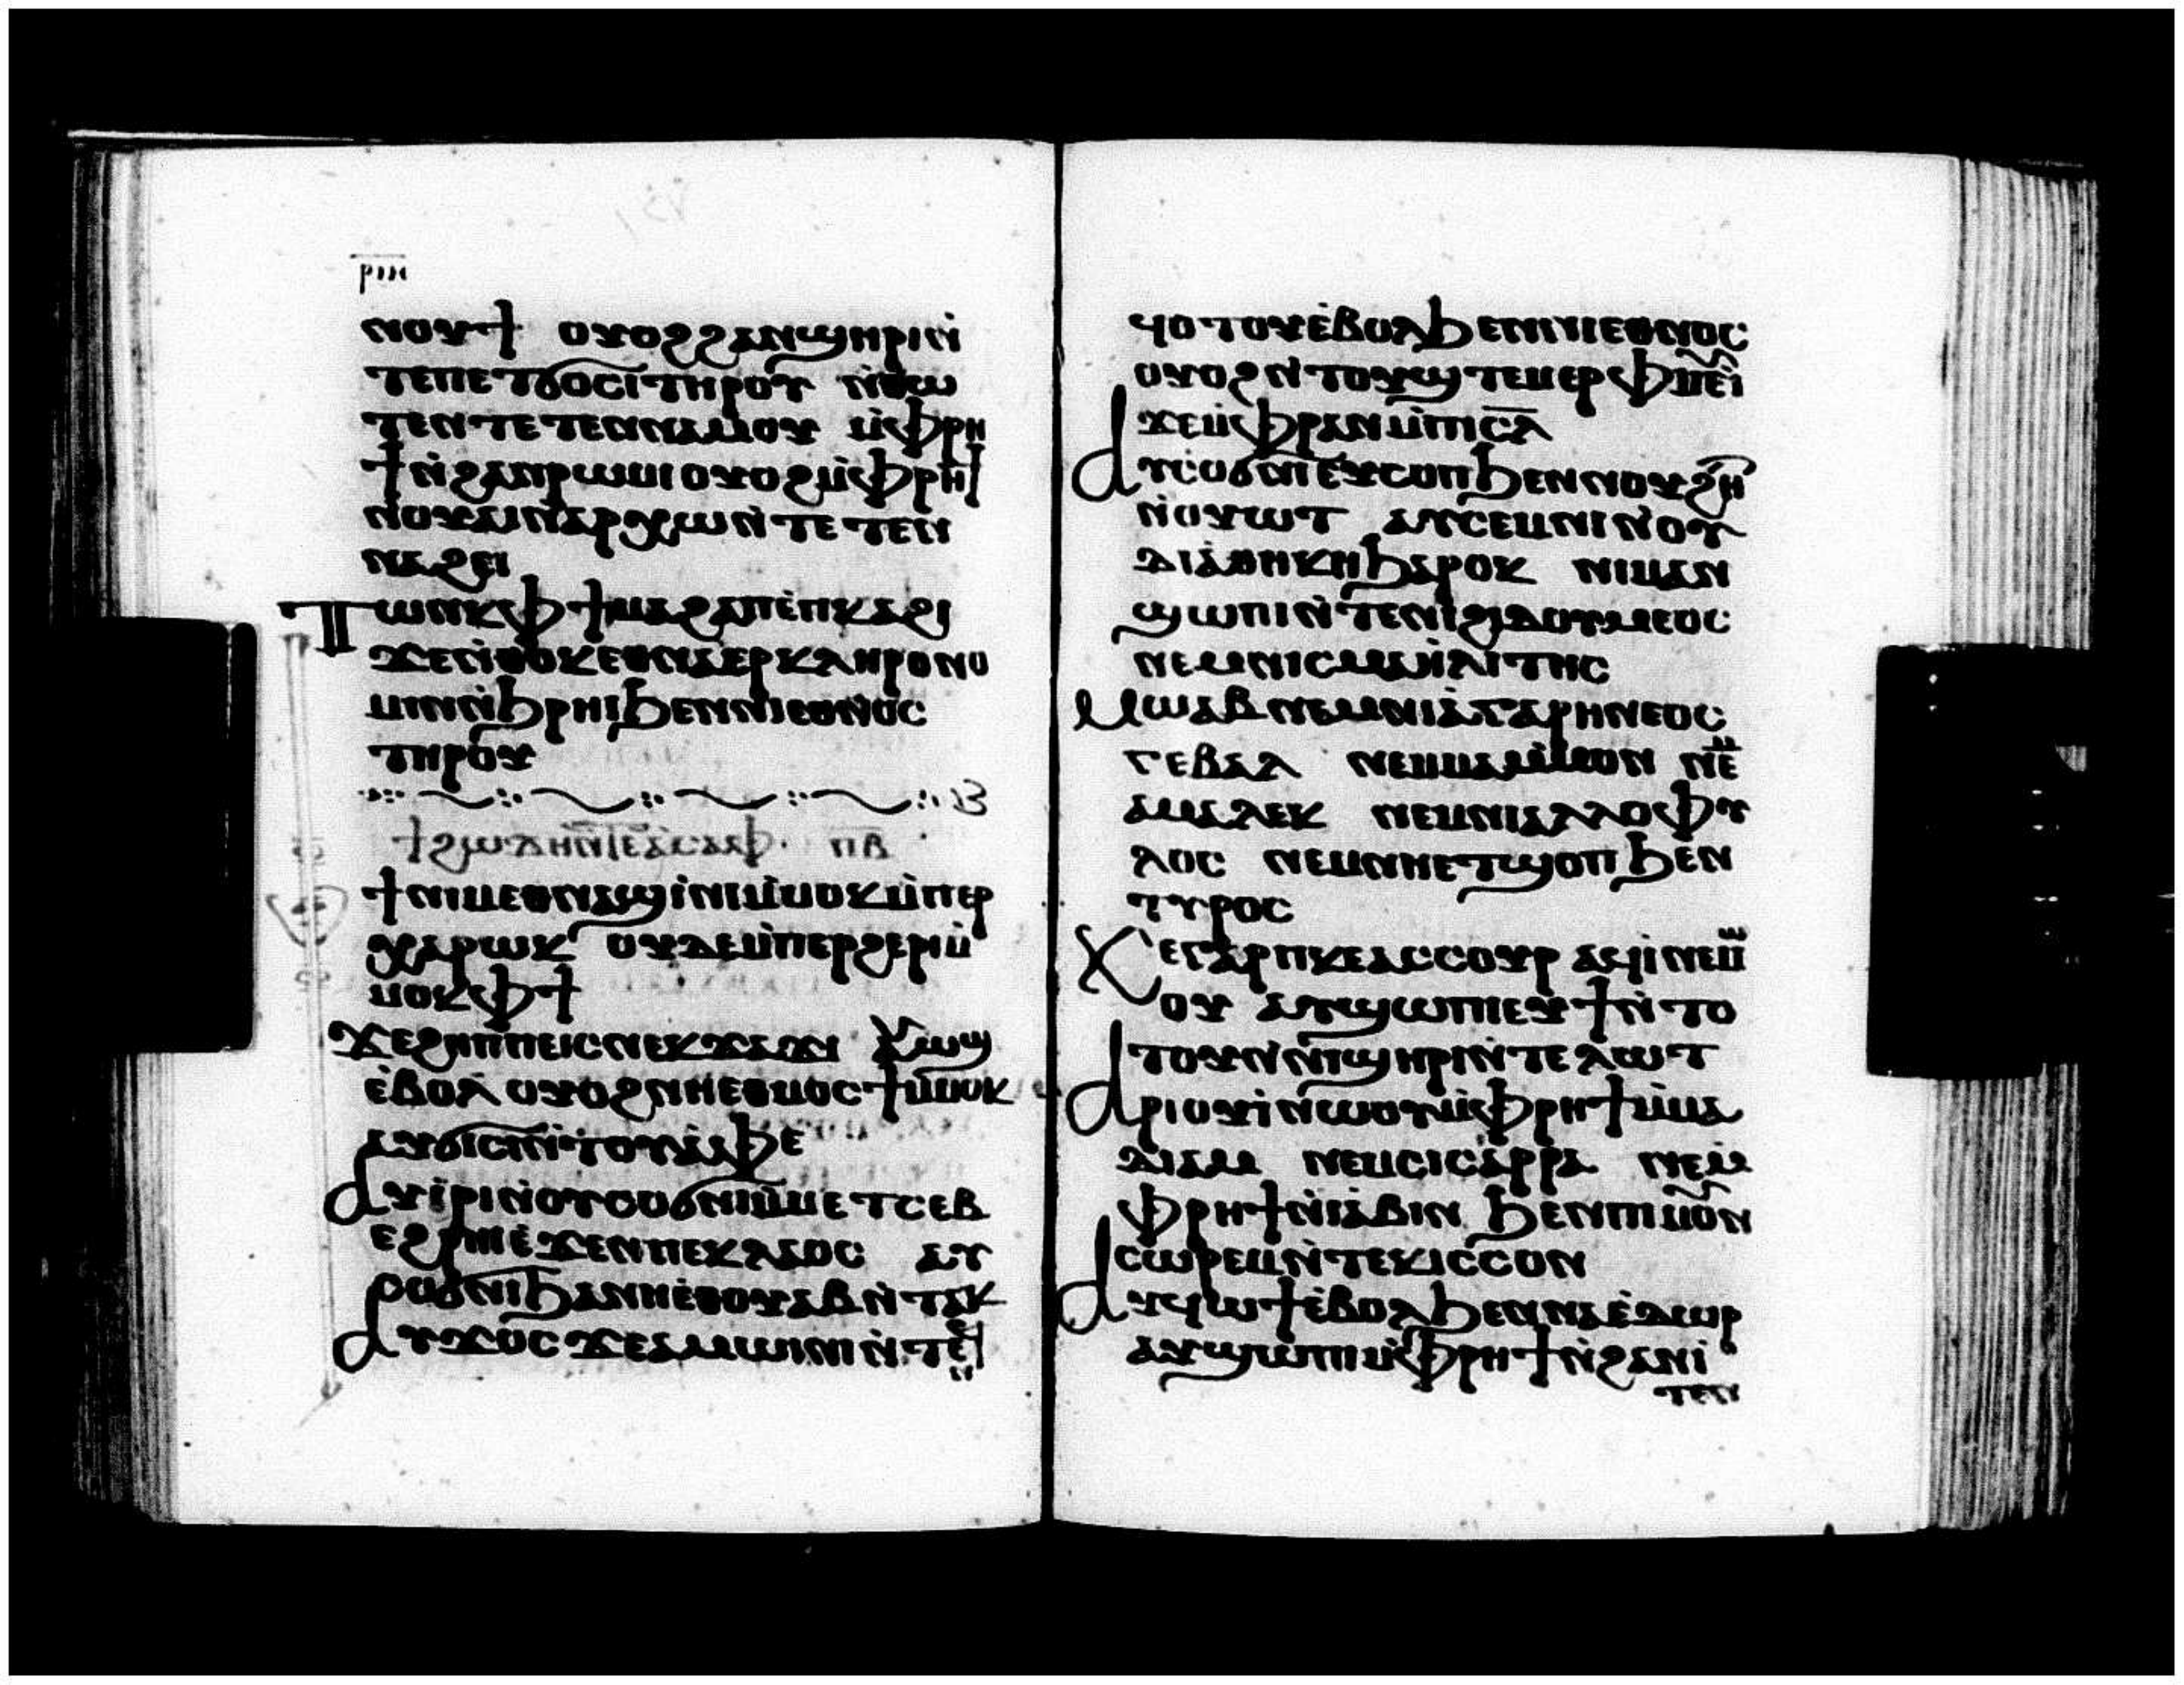 ⲣⲓⲏ
ⲛⲟⲩϯ ⲟⲩⲟϩϩⲁⲛϣⲏⲣⲓⲛ̀
ⲧⲉⲡⲉⲧϭⲟⲥⲓⲧⲏⲣⲟⲩ ⲛ̀ⲑⲱ
ⲧⲉⲛⲧⲉⲧⲉⲛⲛⲁⲙⲟⲩ ⲙ̀ⲫⲣⲏ
ϯⲛ̀ϩⲁⲛⲣⲱⲙⲓⲟⲩⲟϩⲙ̀ⲫⲣⲏϯ
ⲛⲟⲩⲁⲓⲛ̀ⲁⲣⲭⲱⲛ̀ⲧⲉⲧⲉⲛ
ⲛⲁϩⲉⲓ
ⲧⲱⲛⲕⲫϯⲙⲁϩⲁⲡⲉ̀ⲡⲕⲁϩⲓ
ϫⲉⲛ̀ⲑⲟⲕⲉⲑⲛⲁⲉⲣⲕⲗⲏⲣⲟⲛⲟ
ⲙⲓⲛⲛ̀ϧⲣⲏⲓϧⲉⲛⲛⲓⲉⲑⲛⲟⲥ
ⲧⲏⲣⲟⲩ
ϯϩⲱⲇⲏⲛ̄ⲧⲉⲁ̄ⲥⲁⲫ · ⲡⲃ
ϯⲛⲓⲙⲉⲑⲛⲁϣⲓ̀ⲛⲓⲙ̀ⲙⲟⲕⲙ̀ⲡⲉⲣ
ⲭⲁⲣⲱⲕ ⲟⲩⲇⲉⲙ̀ⲡⲉⲣϩⲉⲣⲓⲙ̀
ⲙⲟⲕⲫϯ
ϫⲉϩⲏⲡⲡⲉⲓⲥⲛⲉⲕϫⲁϫⲓ ⲁⲩⲱϣ
ⲉ̀ⲃⲟⲗ ⲟⲩⲟϩⲛⲏⲉⲑⲙⲟⲥϯⲙ̀ⲙⲟⲕ
ⲁⲩϭⲓⲥⲓⲛ̀ⲧⲟⲩⲁ̀ⲫⲉ
ⲁⲩⲓ̀ⲣⲓⲛ̀ⲟⲩⲥⲟϭⲛⲓⲙ̀ⲙⲉⲧⲥⲉⲃ
ⲉϩⲣⲏⲓⲉ̀ϫⲉⲛⲡⲉⲕⲗⲁⲟⲥ ⲁⲩ
ⲥⲟϭⲛⲓϧⲁⲛⲏⲉ̀ⲑⲟⲩⲁⲃⲛ̀ⲧⲁⲕ
ⲁⲩϫⲟⲥϫⲉⲁⲙⲱⲓⲛⲓⲛ̀ⲧⲉ
ⲛ
ϥⲟⲧⲟⲩⲉ̀ⲃⲟⲗϧⲉⲛⲛⲓⲉⲑⲛⲟⲥ
ⲟⲩⲟϩⲛ̀ⲧⲟⲩϣⲧⲉⲙⲉⲣⲫⲙⲉⲩⲓ̀
ϫⲉⲙ̀ⲫⲣⲁⲛⲙ̀ⲡⲓⲥ̅ⲗ̅
ⲁⲩⲥⲟϭⲛⲓⲉⲩⲥⲟⲡϧⲉⲛⲛⲟⲩϩⲏ
ⲛ̀ⲟⲩⲱⲧ ⲁⲩⲥⲉⲙⲛⲓⲛ̀ⲟⲩ
ⲇⲓⲁⲑⲏⲕⲏϧⲁⲣⲟⲕ ⲛⲓⲙⲁⲛ
ϣⲱⲡⲓⲛ̀ⲧⲉⲛⲓϩⲓⲇⲟⲩⲙⲉⲟⲥ
ⲛⲉⲙⲛⲓⲥⲙⲁⲏ̀ⲗⲓⲧⲏⲥ
ⲙⲱⲁⲃⲛⲉⲙⲛⲓⲁ̀ⲅⲁⲣⲏⲛⲉⲟⲥ
ⲅⲉⲃⲁⲗ ⲛⲉⲙⲙⲁⲙⲙⲱⲛ ⲛⲉⲙ
ⲁⲙⲁⲗⲉⲕ ⲛⲉⲙⲛⲓⲁⲗⲗⲟⲫⲩ
ⲗⲟⲥ ⲛⲉⲙⲛⲏⲉⲧϣⲟⲡϧⲉⲛ
ⲧⲩⲣⲟⲥ
ϫⲉⲅⲁⲣⲡⲕⲉⲁⲥⲥⲟⲩⲣ ⲁϥⲓ̀ⲛⲉⲙ
ⲱⲟⲩ ⲁⲩϣⲱⲡⲓⲉⲩϯⲛ̀ⲧⲟ
ⲧⲟⲩⲛ̀ⲛⲓϣⲏⲣⲓⲛ̀ⲧⲉⲗⲱⲧ
ⲁⲣⲓⲟⲩⲓ̀ⲛⲱⲟⲩⲙ̀ⲫⲣⲏϯⲙ̀ⲙⲁ
ⲇⲓⲁⲙ ⲛⲉⲙⲥⲓⲥⲁⲣⲣⲁ ⲛⲉⲙ
ⲫⲣⲏϯⲛ̀ⲓⲁⲃⲓⲛ ϧⲉⲛⲡⲓⲙⲟⲩⲛ
ⲥⲱⲣⲉⲙⲛ̀ⲧⲉⲕⲓⲥⲥⲟⲛ
ⲁⲩϥⲱϯⲉ̀ⲃⲟⲗϧⲉⲛⲛⲁⲉ̀ⲇⲱⲣ
ⲁⲩϣⲱⲡⲓⲙ̀ⲫⲣⲏϯⲛ̀ϩⲁⲛⲓ̀
ⲧⲉⲛ